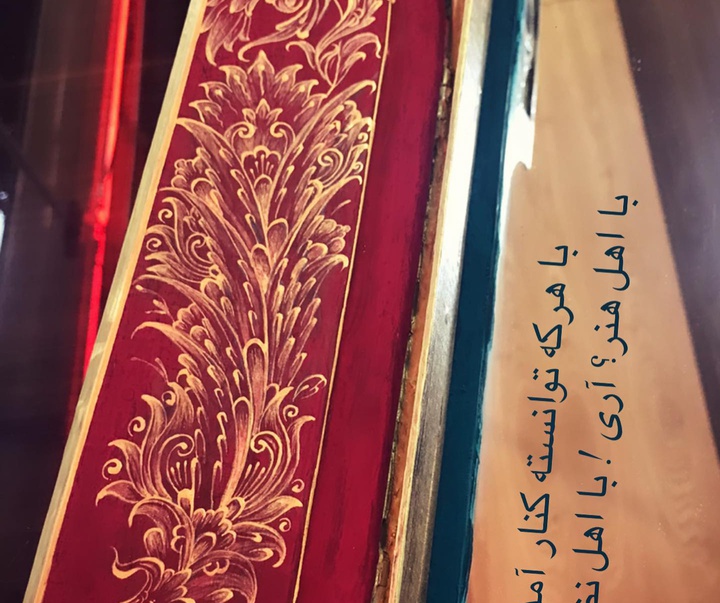 با هرکه توانسته کنار آمد
با اهل هنر؟ آری ! با اهل